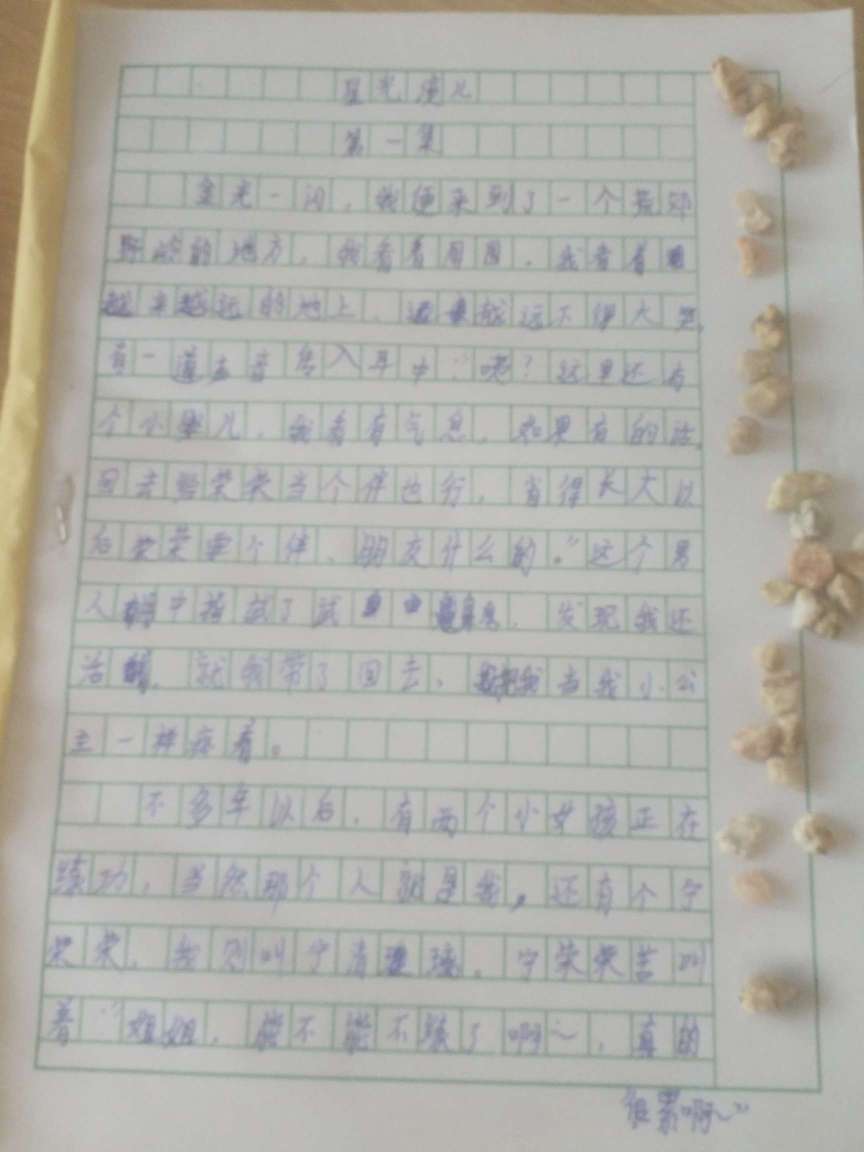 星光漫儿
第一集
金光一闪，我便来到了一个荒郊
野岭的地方，我看着周围，我看着
越来越远的地上，越远不得大哭，
有一道声音传入耳中：“咦？这里还有
个小婴儿，我看有气息，如果有的话，
回去跟荣荣当个伴也行，省得长大以
后荣荣要个伴、朋友什么的。”这个男
人中指试了试，发现我还
活，就我带了回去，我当我小公
主一样疼着。
不多年以后，有两个小女孩正在
练功，当然那个人就是我，还有个宁
荣荣，我则叫宁清璃。宁荣荣苦叫
着：“姐姐，能不能不练了啊～，真的
很累啊～”